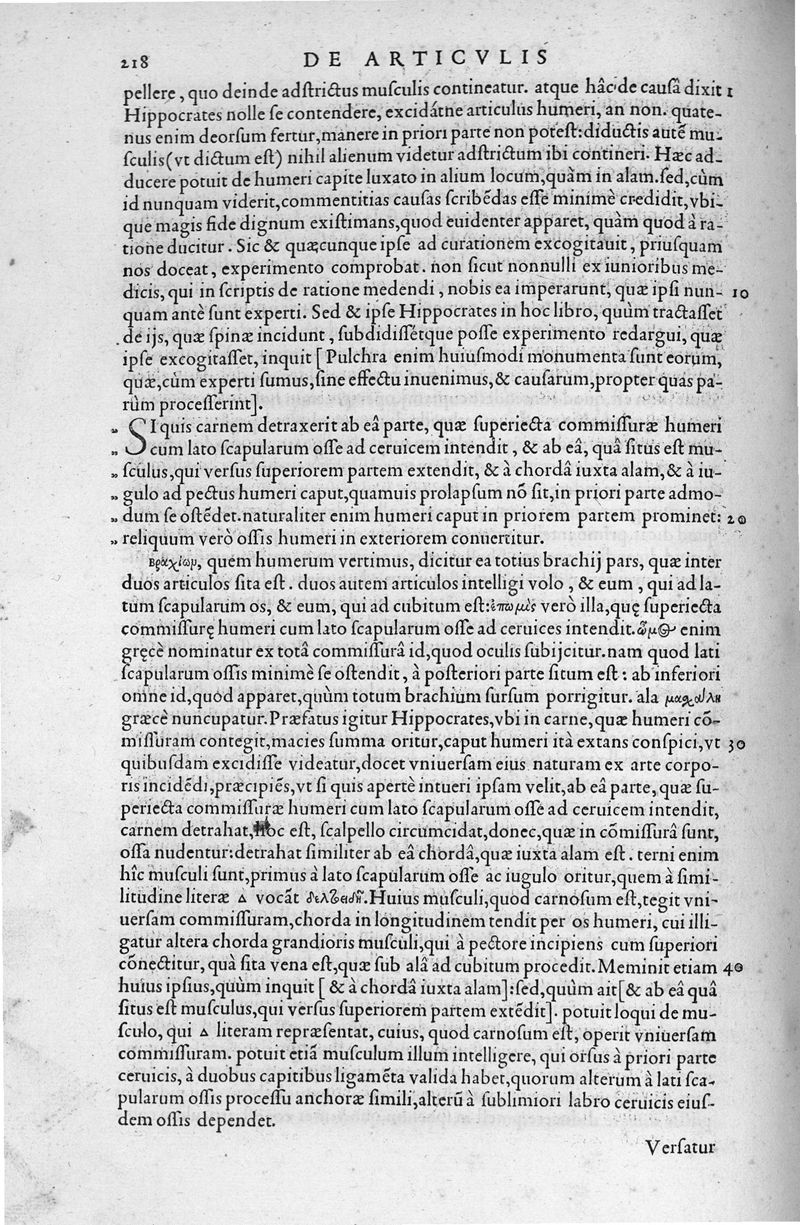 218 DE ARTICVLIS
pellere, quo deinde adſtrictus muſculis contineatur. atque hâc de cauſâ dixit 1
Hippocrates nolle ſe contendere, excidátne articulus humeri, an non. quate-
nus enim deorſum fertur, manere in priori parte non poteſt: diductis autē mu-
ſculis (vt dictum eſt) nihil alienum videtur adſtrictum ibi contineri. Hæc ad-
ducere potuit de humeri capite luxato in alium locum, quàm in alam. ſed, cùm
id nunquam viderit, commentitias cauſas ſcribēdas eſſe minimè credidit, vbi-
que magis fide dignum exiſtimans, quod euidenter apparet, quàm quod à ra-
tione ducitur. Sic & quæcunque ipſe ad curationem excogitauit, priuſquam
nos doceat, experimento comprobat. non ſicut nonnulli ex iunioribus me-
dicis, qui in ſcriptis de ratione medendi, nobis ea imperarunt, quæ ipſi nun- 10
quam antè ſunt experti. Sed & ipſe Hippocrates in hoc libro, quùm tractaſſet
de ijs, quæ ſpinæ incidunt, ſubdidiſſétque poſſe experimento redargui, quæ
ipſe excogitaſſet, inquit [ Pulchra enim huiuſmodi monumenta ſunt eorum,
quæ, cùm experti ſumus, ſine effectu inuenimus, & cauſarum, propter quas pa-
rùm proceſſerint].
„ SI quis carnem detraxerit ab eâ parte, quæ ſuperiecta commiſſuræ humeri
„ cum lato ſcapularum oſſe ad ceruicem intendit, & ab eâ, quâ ſitus eſt mu-
„ ſculus, qui verſus ſuperiorem partem extendit, & à chordâ iuxta alam, & à iu-
„ gulo ad pectus humeri caput, quamuis prolapſum nō ſit, in priori parte admo-
„ dum ſe oſtēdet. naturaliter enim humeri caput in priorem partem prominet: 20
„ reliquum verò oſſis humeri in exteriorem conuertitur.
βραχίωμ, quem humerum vertimus, dicitur ea totius brachij pars, quæ inter
duos articulos ſita eſt. duos autem articulos intelligi volo, & eum, qui ad la-
tum ſcapularum os, & eum, qui ad cubitum eſt: ἐπωμὶς verò illa, quę ſuperiecta
commiſſurę humeri cum lato ſcapularum oſſe ad ceruices intendit. ὦμος enim
gręcè nominatur ex totâ commiſſurâ id, quod oculis ſubijcitur. nam quod lati
ſcapularum oſſis minimè ſe oſtendit, à poſteriori parte ſitum eſt: ab inferiori
omne id, quòd apparet, quùm totum brachium ſurſum porrigitur. ala μαχάλη
græcè nuncupatur. Præfatus igitur Hippocrates, vbi in carne, quæ humeri cō-
miſſuram contegit, macies ſumma oritur, caput humeri ità extans conſpici, vt 30
quibuſdam excidiſſe videatur, docet vniuerſam eius naturam ex arte corpo-
ris incidēdi, præcipiēs, vt ſi quis apertè intueri ipſam velit, ab eâ parte, quæ ſu-
periecta commiſſuræ humeri cum lato ſcapularum oſſe ad ceruicem intendit,
carnem detrahat, hoc eſt, ſcalpello circumcidat, donec, quæ in cōmiſſurâ ſunt,
oſſa nudentur: detrahat ſimiliter ab eâ chordâ, quæ iuxta alam eſt. terni enim
hîc muſculi ſunt, primus à lato ſcapularum oſſe ac iugulo oritur, quem à ſimi-
litudine literæ Δ vocāt δελτοειδῆ. Huius muſculi, quod carnoſum eſt, tegit vni-
uerſam commiſſuram, chorda in longitudinem tendit per os humeri, cui illi-
gatur altera chorda grandioris muſculi, qui à pectore incipiens cum ſuperiori
cōnectitur, quà ſita vena eſt, quæ ſub alâ ad cubitum procedit. Meminit etiam 40
huius ipſius, quùm inquit [ & à chordâ iuxta alam]: ſed, quùm ait [& ab eâ quâ
ſitus eſt muſculus, qui verſus ſuperiorem partem extēdit]. potuit loqui de mu-
ſculo, qui Δ literam repræſentat, cuius, quod carnoſum eſt, operit vniuerſam
commiſſuram. potuit etiā muſculum illum intelligere, qui orſus à priori parte
ceruicis, à duobus capitibus ligamēta valida habet, quorum alterum à lati ſca-
pularum oſſis proceſſu anchoræ ſimili, alterū à ſublimiori labro ceruicis eiuſ-
dem oſſis dependet.
Verſatur